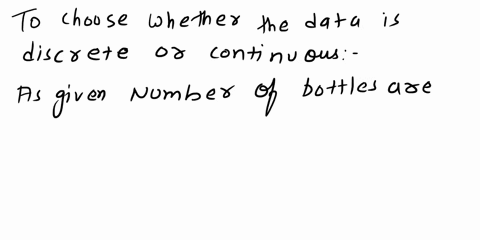 To choose whether the data is
discrete or continuous:-
As given Number of bottles are